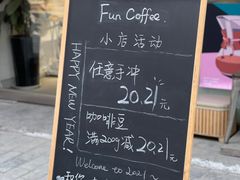 Fun Coffee.
小店活动
HAPPY NEW YEAR!
任意手冲
20.21元
咖啡豆
满200g减20.21元
Welcome to 2021